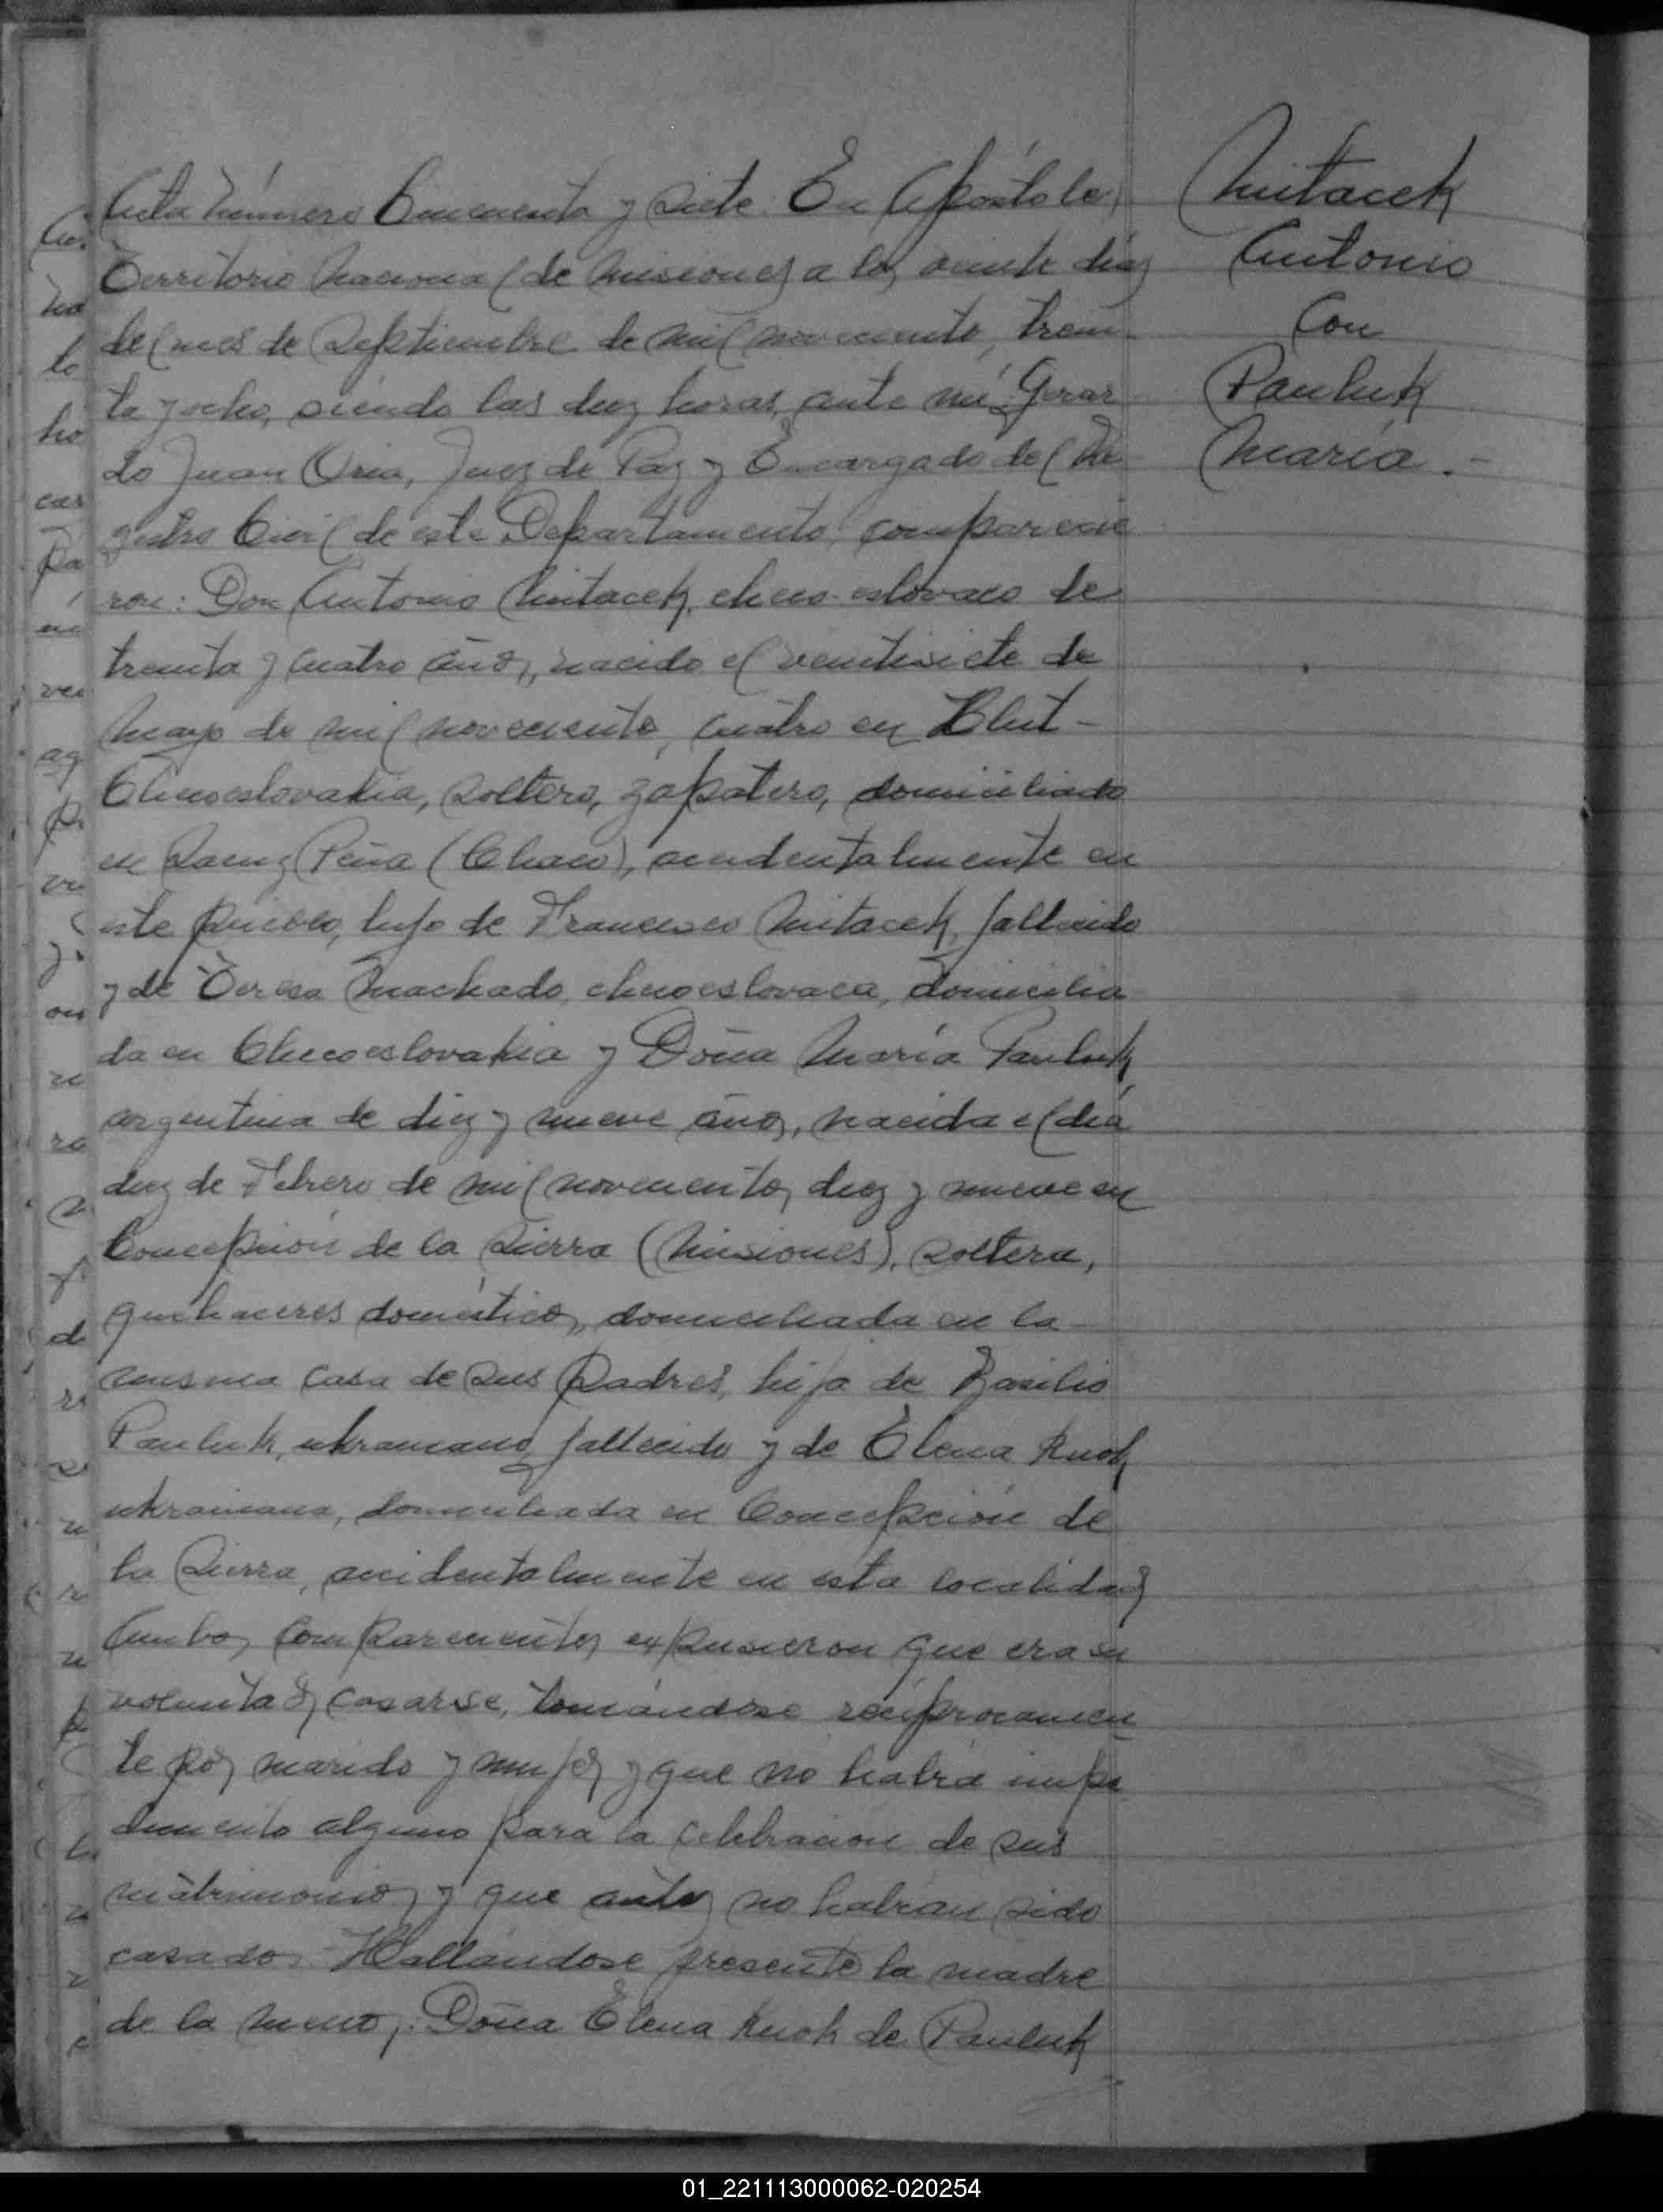 Acta número Cincuenta y siete: En Apóstoles
Territorio Nacional de Misiones a los veinte días
del mes de Septiembre de mil novecientos trein-
ta y ocho, siendo las diez horas, ante mí Gerar-
do Juan Oria, Juez de Paz y Encargado del Re-
gistro Civil de este Departamento, comparecie
ron: Don Antonio Mitacek, checo-eslovaco de
treinta y cuatro años, nacido el veintisiete de
Mayo de mil novecientos cuatro en
Checoeslovakia, soltero, zapatero, domiciliado
en Saenz Peña (Chaco), accidentalmente en
este pueblo, hijo de Francisco Mitacek, fallecido
y de Teresa Machado, checoeslovaca, domicilia
da en Checoeslovakia y Doña María Pauluk
argentina de diez y nueve años, nacida el día
diez de Febrero de mil novecientos diez y nueve en
Concepción de la Sierra (Misiones), soltera,
quehaceres domésticos, domiciliada en la-
misma casa de sus Padres, hija de Basilio
Pauluk, ukraniano, fallecido y de Elena Kuok
ukraniana, domiciliada en Concepción de
la Sierra, accidentalmente en esta localidad
Ambos comparecientes expusieron que era su
voluntad casarse, tomándose recíprocamen
te por marido y mujer y que no había impe
dimento alguno para la celebración de sus
matrimonios y que antes no habían sido
casados. Hallándose presente la madre
de la menor: Doña Elena Kuok de Pauluk
Mitacek
Antonio
Con
Pauluk
María.-
01_221113000062-020254